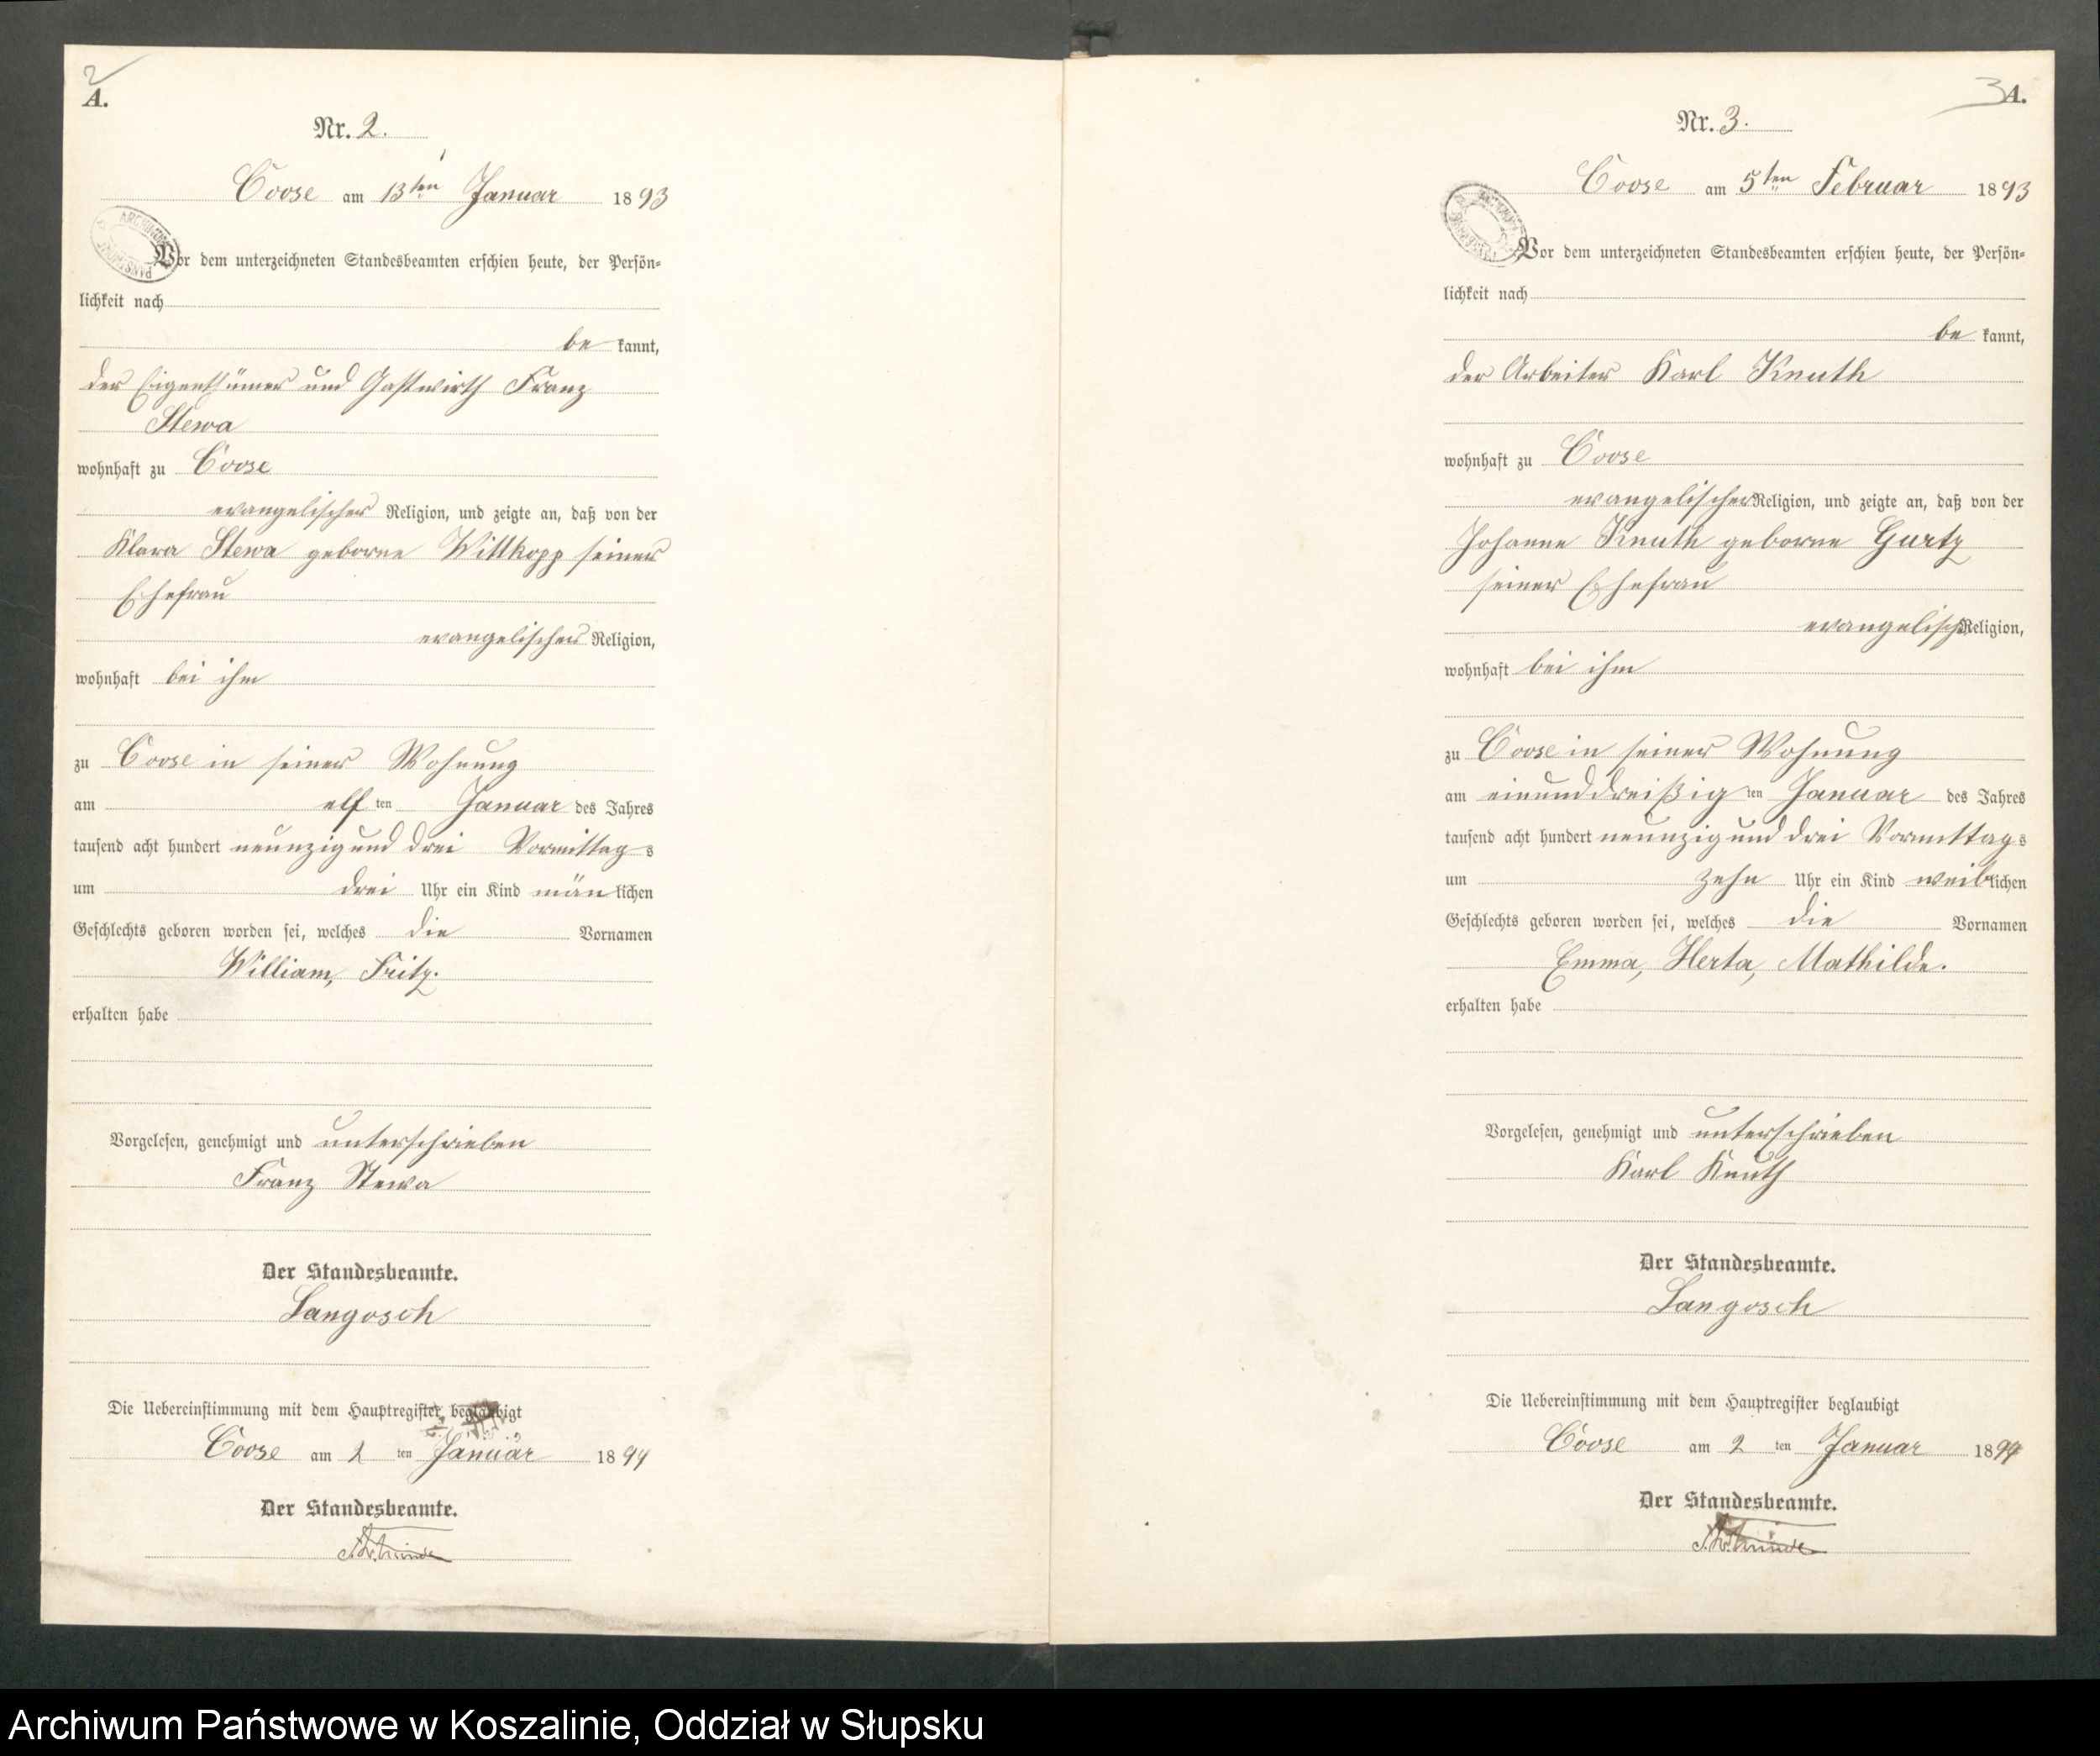 2
A.
Nr. 2.
Coose am 13ten Januar 1893
Vor dem unterzeichneten Standesbeamten erschien heute, der Persön-
lichkeit nach
be kannt,
der Eigenthümer und Gastwirth Franz
Stewa
wohnhaft zu Coose
evangelischer Religion, und zeigte an, daß von der
Klara Stewa geborne Wittkopp seiner
Ehefrau
evangelischer Religion,
wohnhaft bei ihm
zu Coose in seiner Wohnung
am elf ten Januar des Jahres
tausend acht hundert neunzig und drei Vormittag s
um drei Uhr ein Kind män lichen
Geschlechts geboren worden sei, welches die Vornamen
William, Fritz.
erhalten habe
Vorgelesen, genehmigt und unterschrieben
Franz Stewa
Der Standesbeamte.
Langosch
Die Uebereinstimmung mit dem Hauptregister beglaubigt
Coose am 2 ten Januar 1894
Der Standesbeamte.
3
A.
Nr. 3.
Coose am 5ten Februar 1893
Vor dem unterzeichneten Standesbeamten erschien heute, der Persön-
lichkeit nach
be kannt,
der Arbeiter Karl Knuth
wohnhaft zu Coose
evangelischer Religion, und zeigte an, daß von der
Johanne Knuth geborne Gurtz
seiner Ehefrau
evangelisch Religion,
wohnhaft bei ihm
zu Coose in seiner Wohnung
am einunddreißig ten Januar des Jahres
tausend acht hundert neunzig und drei Vormittag s
um zehn Uhr ein Kind weib lichen
Geschlechts geboren worden sei, welches die Vornamen
Emma, Herta, Mathilde.
erhalten habe
Vorgelesen, genehmigt und unterschrieben
Karl Knuth
Der Standesbeamte.
Langosch
Die Uebereinstimmung mit dem Hauptregister beglaubigt
Coose am 2 ten Januar 1894
Der Standesbeamte.
Archiwum Państwowe w Koszalinie, Oddział w Słupsku